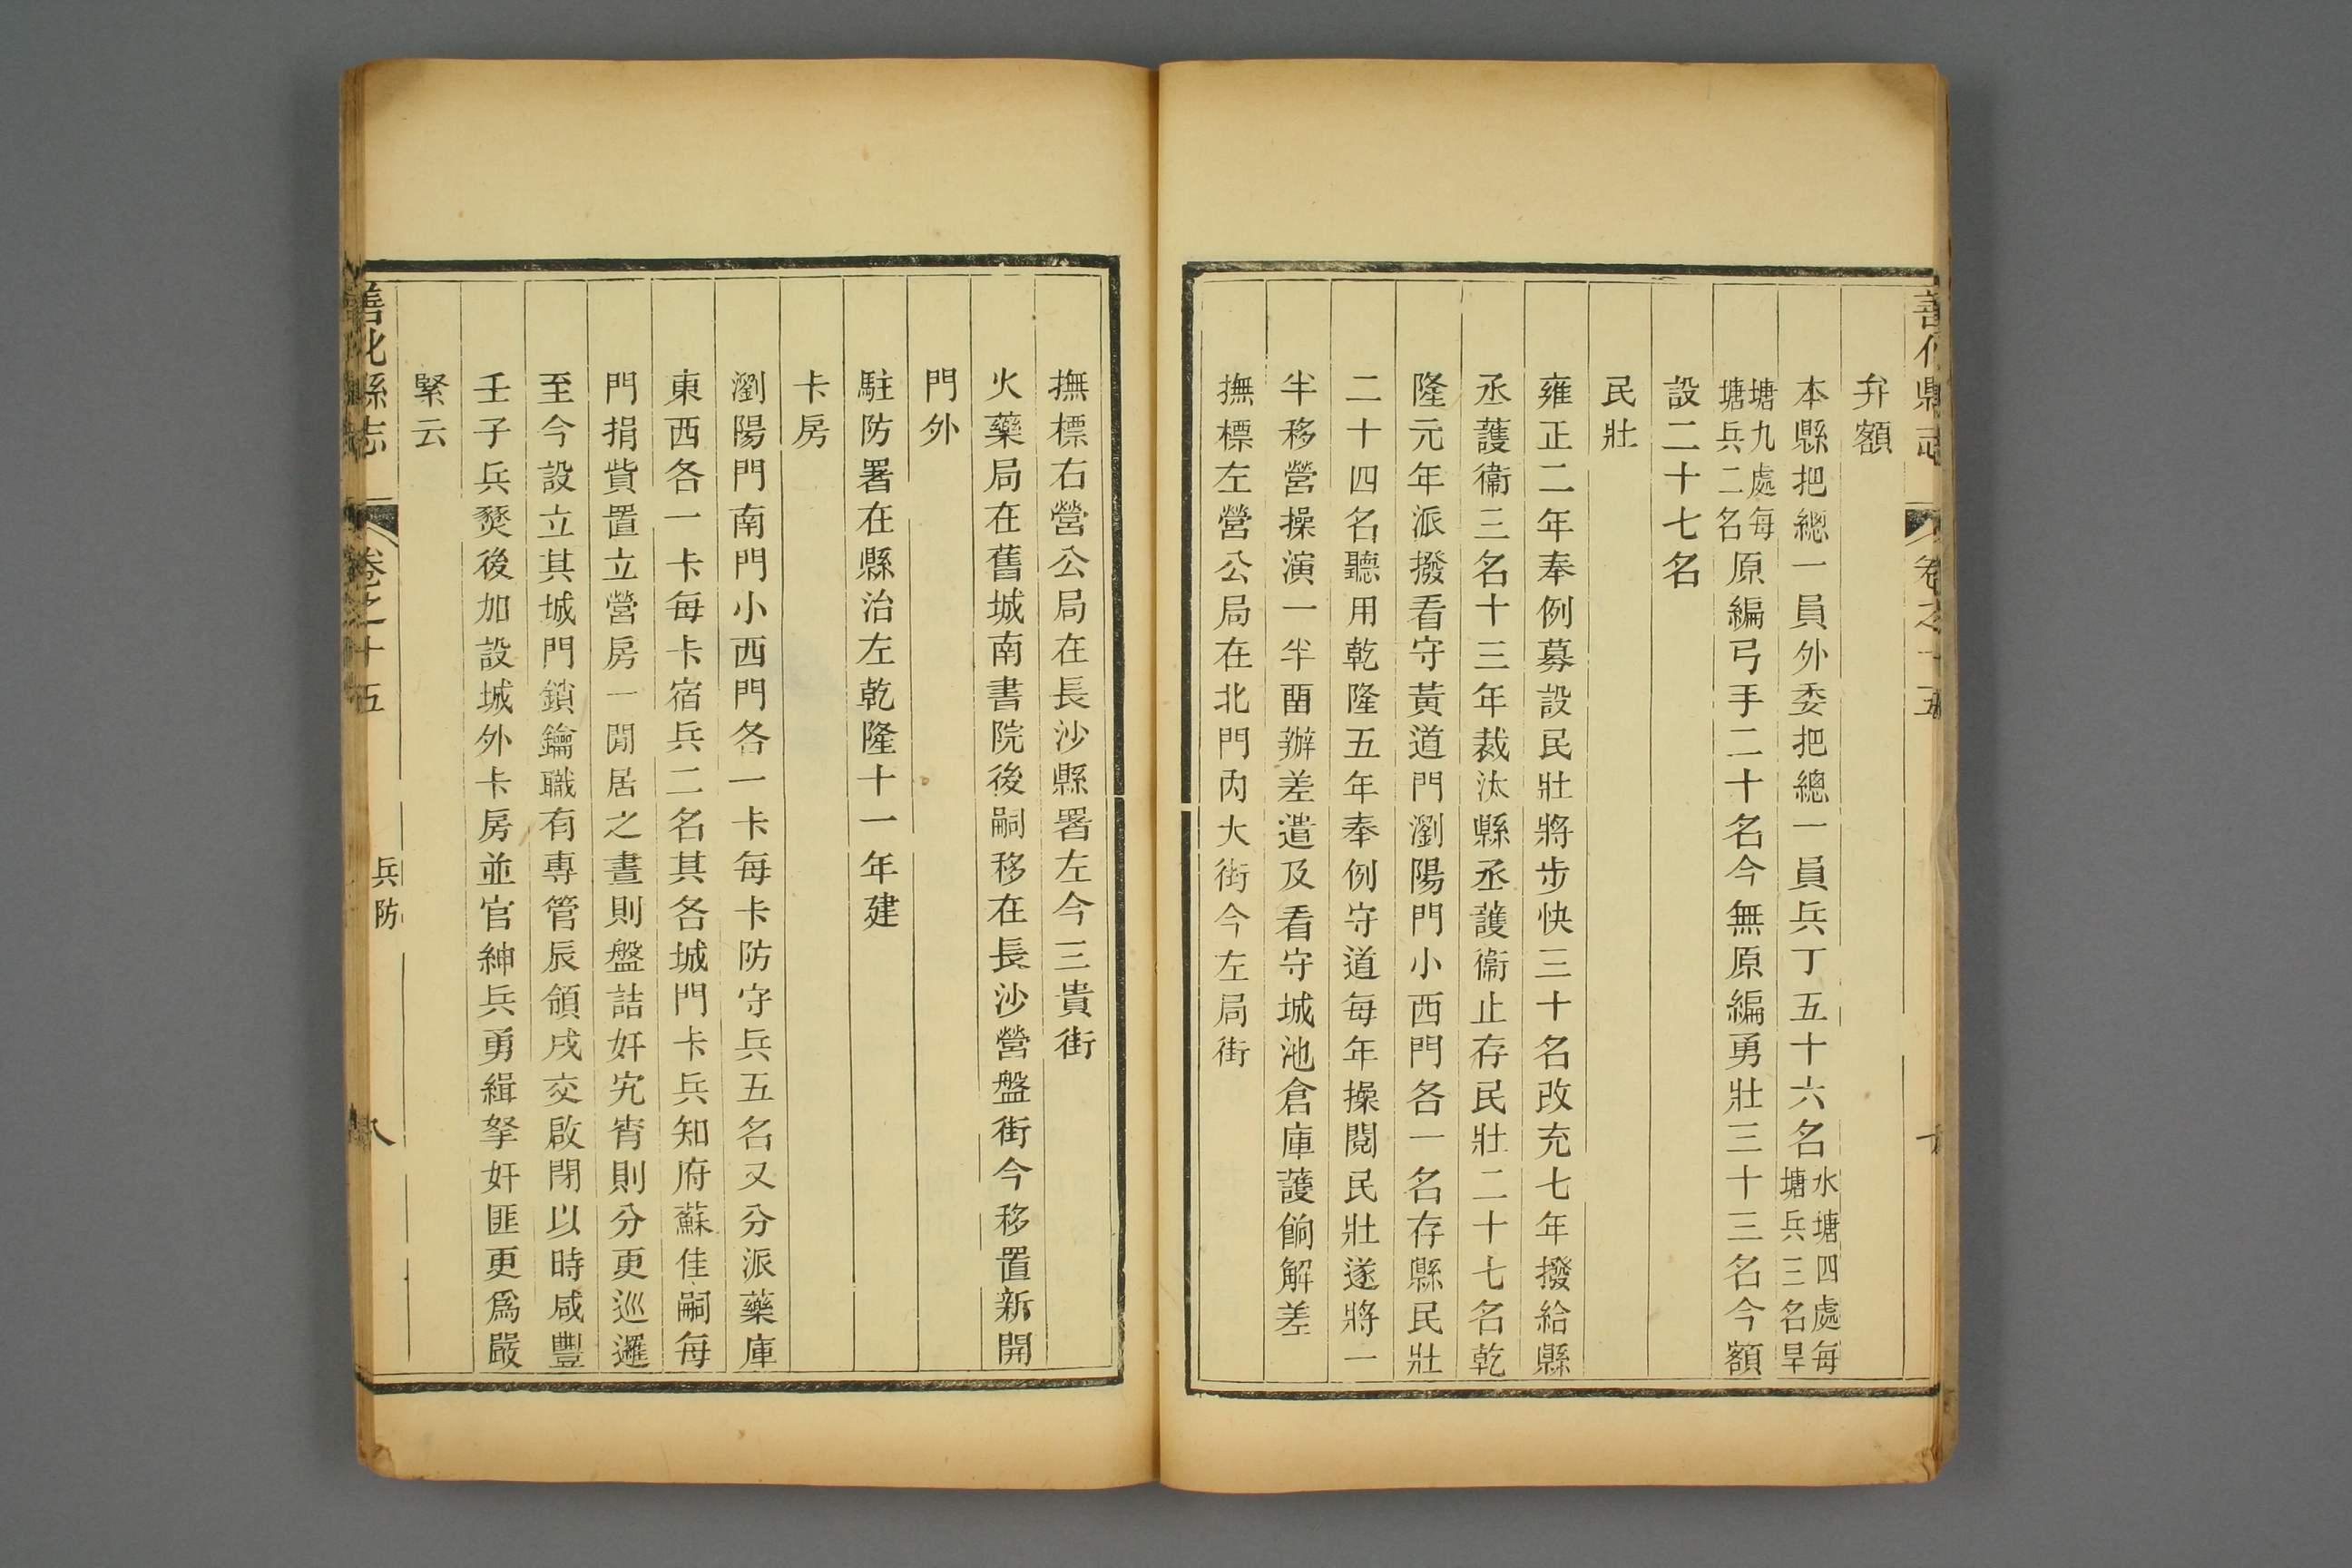 善化縣志 卷之十五
弁額
本縣把總一員外委把總一員兵丁五十六名水塘四處每塘兵三名旱
塘九處每塘兵二名原編弓手二十名今無原編勇壯三十三名今額
設二十七名
民壯
雍正二年奉例募設民壯將步快三十名改充七年撥給縣
丞護衞三名十三年裁汰縣丞護衞止存民壯二十七名乾
隆元年派撥看守黃道門瀏陽門小西門各一名存縣民壯
二十四名聽用乾隆五年奉例守道每年操閱民壯遂將一
半移營操演一半畱辦差遣及看守城池倉庫護餉解差
撫標左營公局在北門內大街今左局街
撫標右營公局在長沙縣署左今三貴街
火藥局在舊城南書院後嗣移在長沙營盤街今移置新開
門外
駐防署在縣治左乾隆十一年建
卡房
瀏陽門南門小西門各一卡每卡防守兵五名又分派藥庫
東西各一卡每卡宿兵二名其各城門卡兵知府蘇佳嗣每
門捐貲置立營房一閒居之晝則盤詰奸宄宵則分更巡邏
至今設立其城門鎖鑰職有專管辰領戌交啟閉以時咸豐
壬子兵燹後加設城外卡房並官紳兵勇緝拏奸匪更爲嚴
緊云
善化縣志 卷之十五 兵防 八